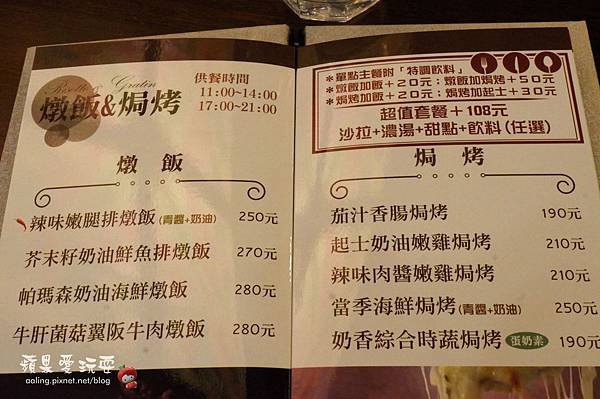 Risotto & Gratin
燉飯&焗烤
供餐時間
11:00~14:00
17:00~21:00
燉飯
辣味嫩腿排燉飯(青醬+奶油) 250元
芥末籽奶油鮮魚排燉飯 270元
帕瑪森奶油海鮮燉飯 280元
牛肝菌菇翼阪牛肉燉飯 280元
*單點主餐附「特調飲料」
*燉飯加飯+20元；燉飯加焗烤+50元
*焗烤加飯+20元；焗烤加起士+30元
超值套餐+108元
沙拉+濃湯+甜點+飲料(任選)
焗烤
茄汁香腸焗烤 190元
起士奶油嫩雞焗烤 210元
辣味肉醬嫩雞焗烤 210元
當季海鮮焗烤(青醬+奶油) 250元
奶香綜合時蔬焗烤 蛋奶素 190元
蘋果愛玩耍
aaling.pixnet.net/blog